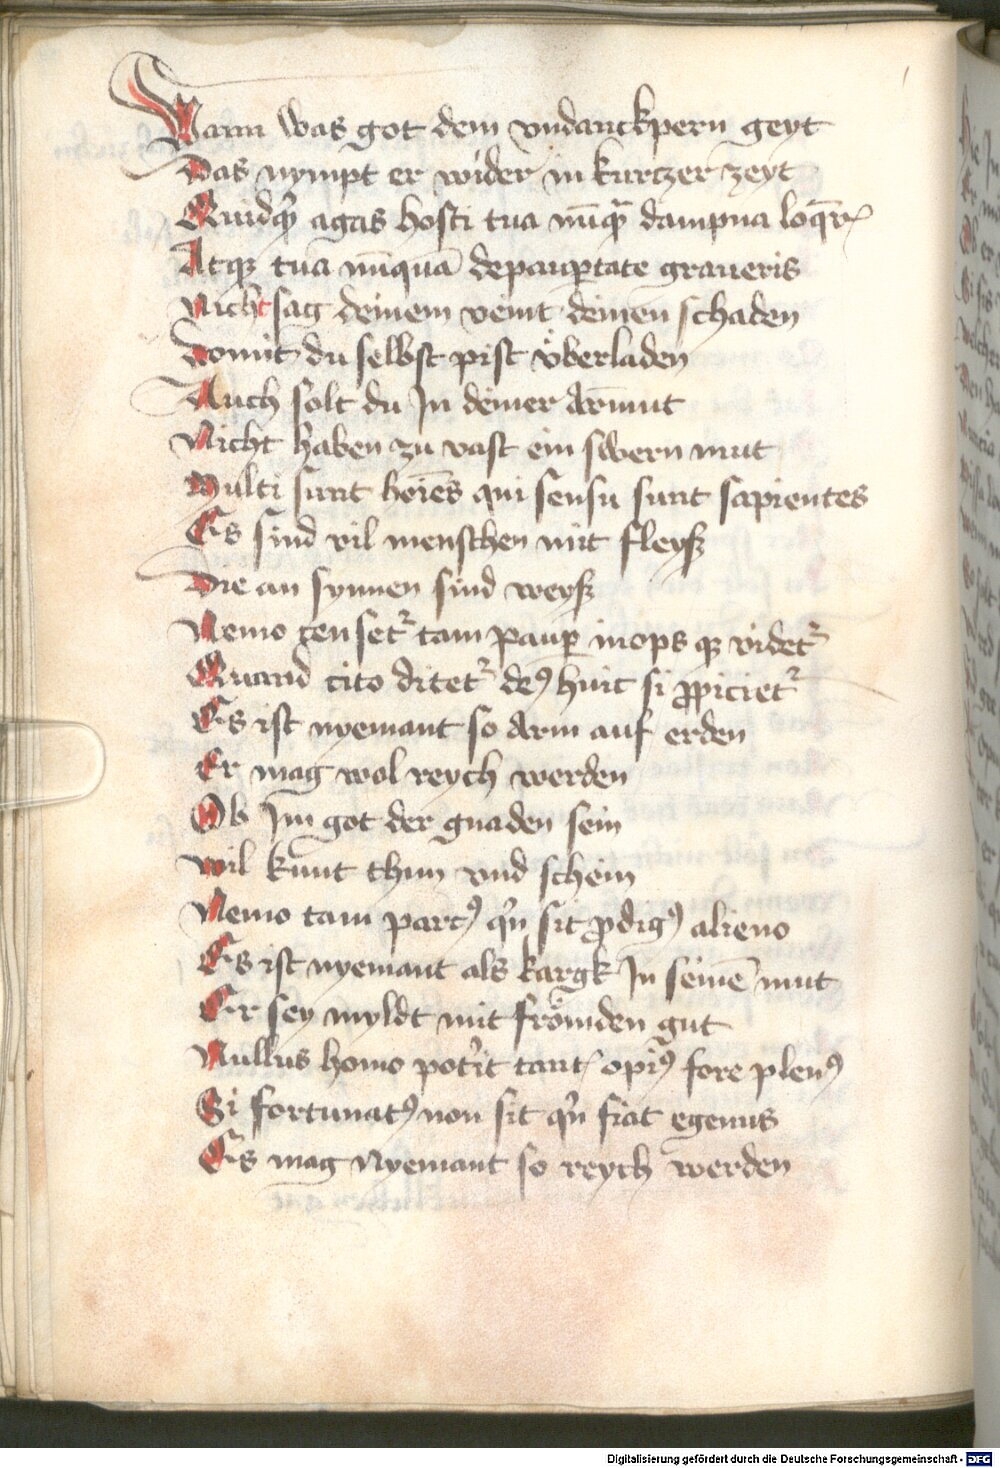 Wann was got dem vndanckpern geyt
Das nympt er wider in kurtzer zeyt
Quidqͥ agas hosti tua nūqᷓ dampna loqͬis
Atqꝫ tua nūquā de paup̱tate graueris
Nicht sag deinem veint deinen schaden
Domit du selbst pist v̈berladen
Auch solt du In deiner arm̄ut
Nicht haben zu vast ein swern mut
Multi sunt hoīes qui sensu sunt sapientes
Es sind vil menschen mit fleysz
Die an synnen sind weysz
Nemo censetᷣ tam paup̱ inops qꝫ videtᷣ
Quand cito ditetᷣ deꝰ huic si ꝓpicietᷣ
Es ist nyemant so arm auf erden
Er mag wol reych werden
Ob Im got der gnaden sein
wil kunt thun vnd schein
Nemo tam parcꝰ qͥn sit ꝓdigꝰ alieno
Es ist nyemant als kargk In seinē mut
Er sey myldt mit frömden gut
Nullus homo potͥit tant opiꝰ fore plenꝰ
Si fortunatꝰ non sit qͥn fiat egenus
Es mag Nyemant so reych werden
Digitalisierung gefördert durch die Deutsche Forschungsgemeinschaft - DFG